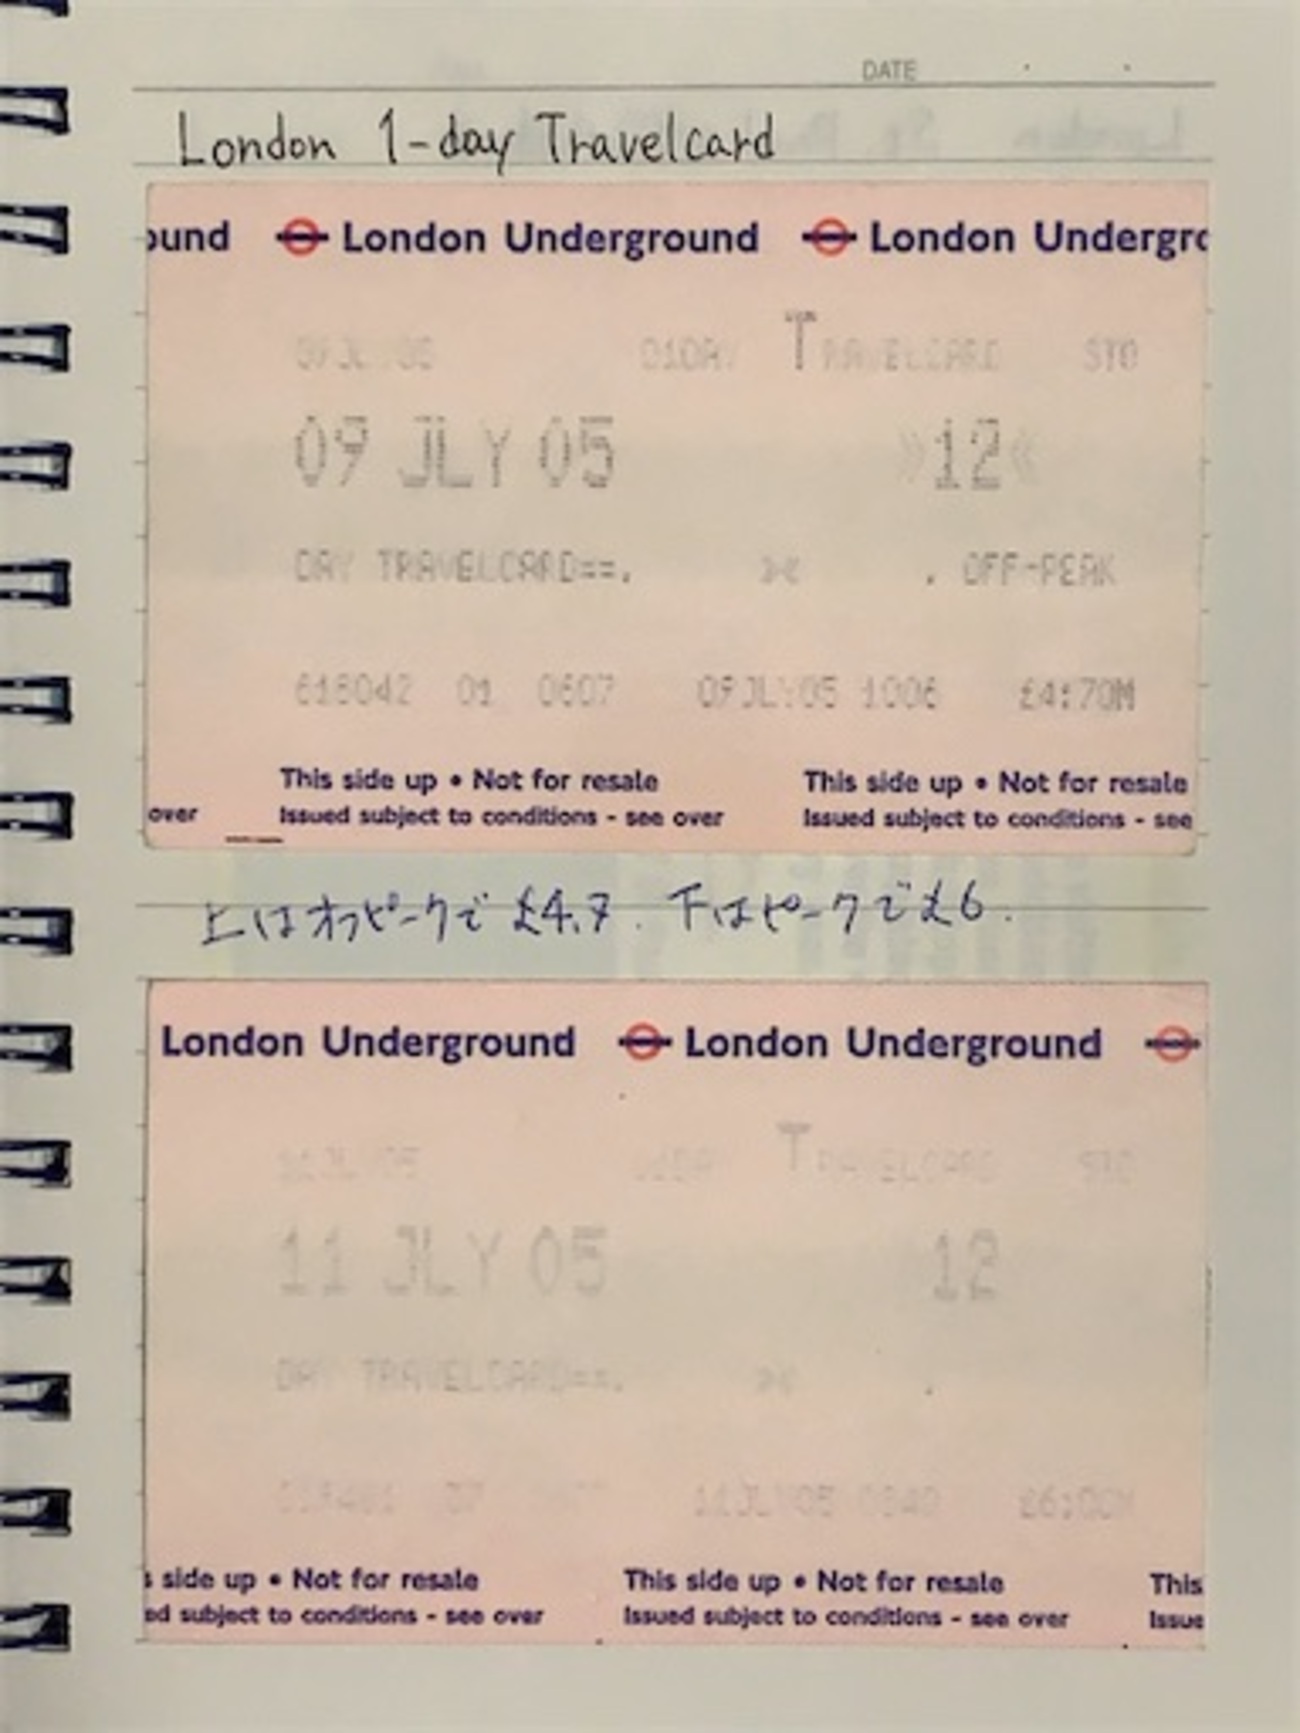 DATE
London 1-day Travelcard
ound London Underground London Undergro
09JLY05 01DAY TRAVELCARD STD
09 JLY 05 »12«
DAY TRAVELCARD==. . OFF-PEAK
618042 01 0607 09JLY05 1006 £4:70M
This side up • Not for resale This side up • Not for resale
over Issued subject to conditions - see over Issued subject to conditions - see
上はオフピークで £4.7. 下はピークで£6.
London Underground London Underground
11JLY05 01DAY TRAVELCARD STD
11 JLY 05 12
DAY TRAVELCARD==. .
11JLY05 £6:00M
s side up • Not for resale This side up • Not for resale This
ed subject to conditions - see over Issued subject to conditions - see over Issue